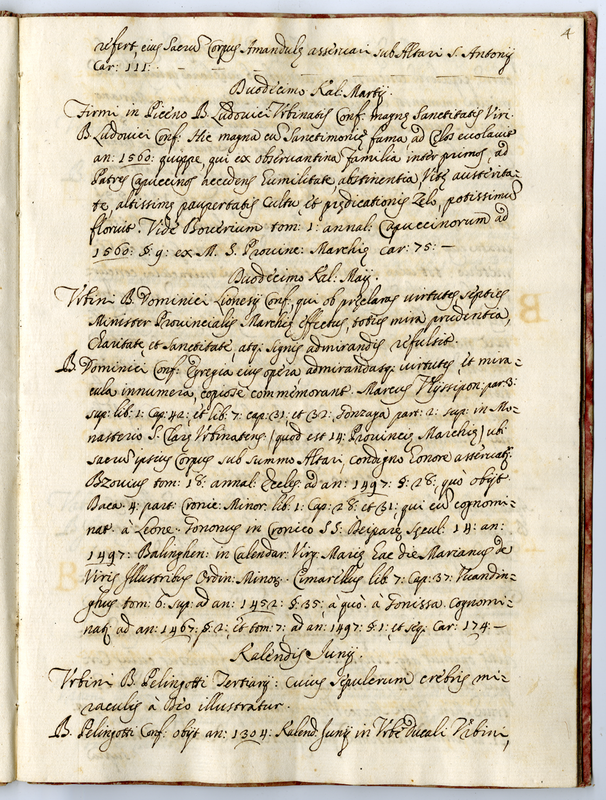 4
refert, eius Sacrũ Corpus Amandulę asseruari sub Altari S. Antonij
Car: 111. —
Duodecimo Kal. Martij.
Firmi in Piceno B. Ludovici Vrbinatis Conf: magnę Sanctitatis Viri.
B. Ludovici Conf: Hic magna cũ Sanctimonię fama ad Cęlos evolavit
an: 1560: quippe, qui ex observantina familia inter primos, ad
Patres Capuccinos accedens humilitate abstinentia Vitę austerita-
te altissimę paupertatis Cultu, et prędicationis Zelo, potissimũ
floruit. Vide Boverium tom: 1: annal: Capuccinorum ad
1560: §: 9: ex M. S. Provinc: Marchię Car: 75: —
Duodecimo Kal. Maij.
Vrbini B. Dominici Conf, qui ob pręclaras virtutes septies
Minister Provincialis Marchię effectus, toties mira prudentia,
Charitate et Sanctitate, atq; signis admirandis refulsit.
B. Dominici Conf: Egregia eius opera admirandasq; virtutes, et mira-
cula innumera, copiose commemorant. Marcus Vlyssipon: par: 3:
sup: lib: 1: Cap: 42: et lib: 7: cap: 31: et 32: Gonzaga part: 2: sup: in Mo-
nasterio S. Clarę Vrbinatens: (quod est 14: Provincię Marchię) ubi
sacrũ ipsius Corpus sub summo Altari, condigno honore asseruatr.
Bzovius tom: 18: annal: Eccles: ad an: 1497: §: 28: quò obijt
Baca. 4: part: Cronic: Minor: lib: 1: Cap: 28: et 31: qui eũ cognomi-
nat: à Leone. Gononus in Cronico SS. Deiparę Sęcul: 14: an:
1497: Balinghen: in Calendar: Virg: Marię hac die Marianus de
Viris Illustribus Ordin: Minor: Cimarellus lib: 7: Cap: 37: Vuandin-
ghus tom: 6: sup: ad an: 1452: §: 35: à quò. à Gonissa. Cognomi-
natr ad an: 1467: §: 2: et tom: 7: ad an: 1497: §: 1: et seq: Car: 174 —
Kalendis Junij.
Vrbini B. Pelingotti Tertiarij: Cuius Sepulcrum crebris mi-
raculis a Deo illustratur.
B. Pelingotti Conf: obijt an: 1304: Kalend: Junij in Vrbe Ducali Vrbini,